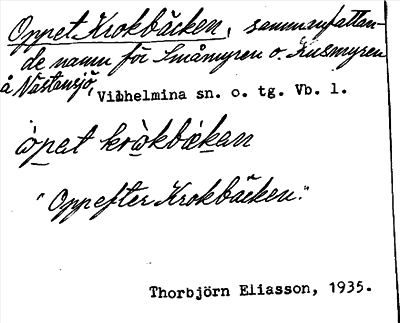 Oppet Krokbäcken, sammanfattan-
de namn för Småmyren o. Kusmyren
å Västansjö, Vilhelmina sn. o. tg. Vb. l.
òpet kròkbäkan
"Oppefter Krokbäcken."
Thorbjörn Eliasson, 1935.